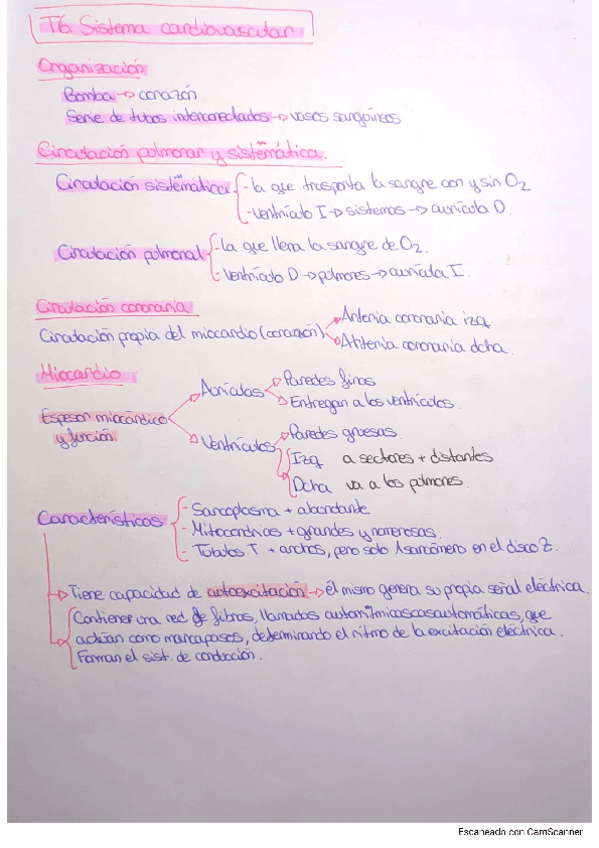 T6 Sistema cardiovascular
Organización
Bomba → corazón
Serie de tubos interconectados → vasos sanguíneos
Circulación pulmonar y sistemática.
Circulación sistemática - la que trasporta la sangre con y sin O2
- ventrículo I → sistemas → aurícula D.
Circulación pulmonal - La que llena la sangre de O2.
- Ventrículo D → pulmones → aurícula I.
Circulación coronaria
Circulación propia del miocardio (corazón) → Arteria coronaria izq
→ Arteria coronaria dcha.
Miocardio
Aurículas → Paredes finas
→ Entregan a los ventrículos.
Espesor miocárdico
y función
Ventrículos → Paredes gruesas.
Izq a sectores + distantes
Dcha va a los pulmones.
Características - Sarcoplasma + abundante
- Mitocondrias + grandes y numerosas.
- Túbulos T + anchos, pero solo 1 sarcómero en el disco Z.
→ Tiene capacidad de autoexcitación → él mismo genera su propia señal eléctrica.
Contienen una red de fibras, llamadas automáticas, que
actúan como marcapasos, determinando el ritmo de la excitación eléctrica.
Forman el sist. de conducción.
Escaneado con CamScanner